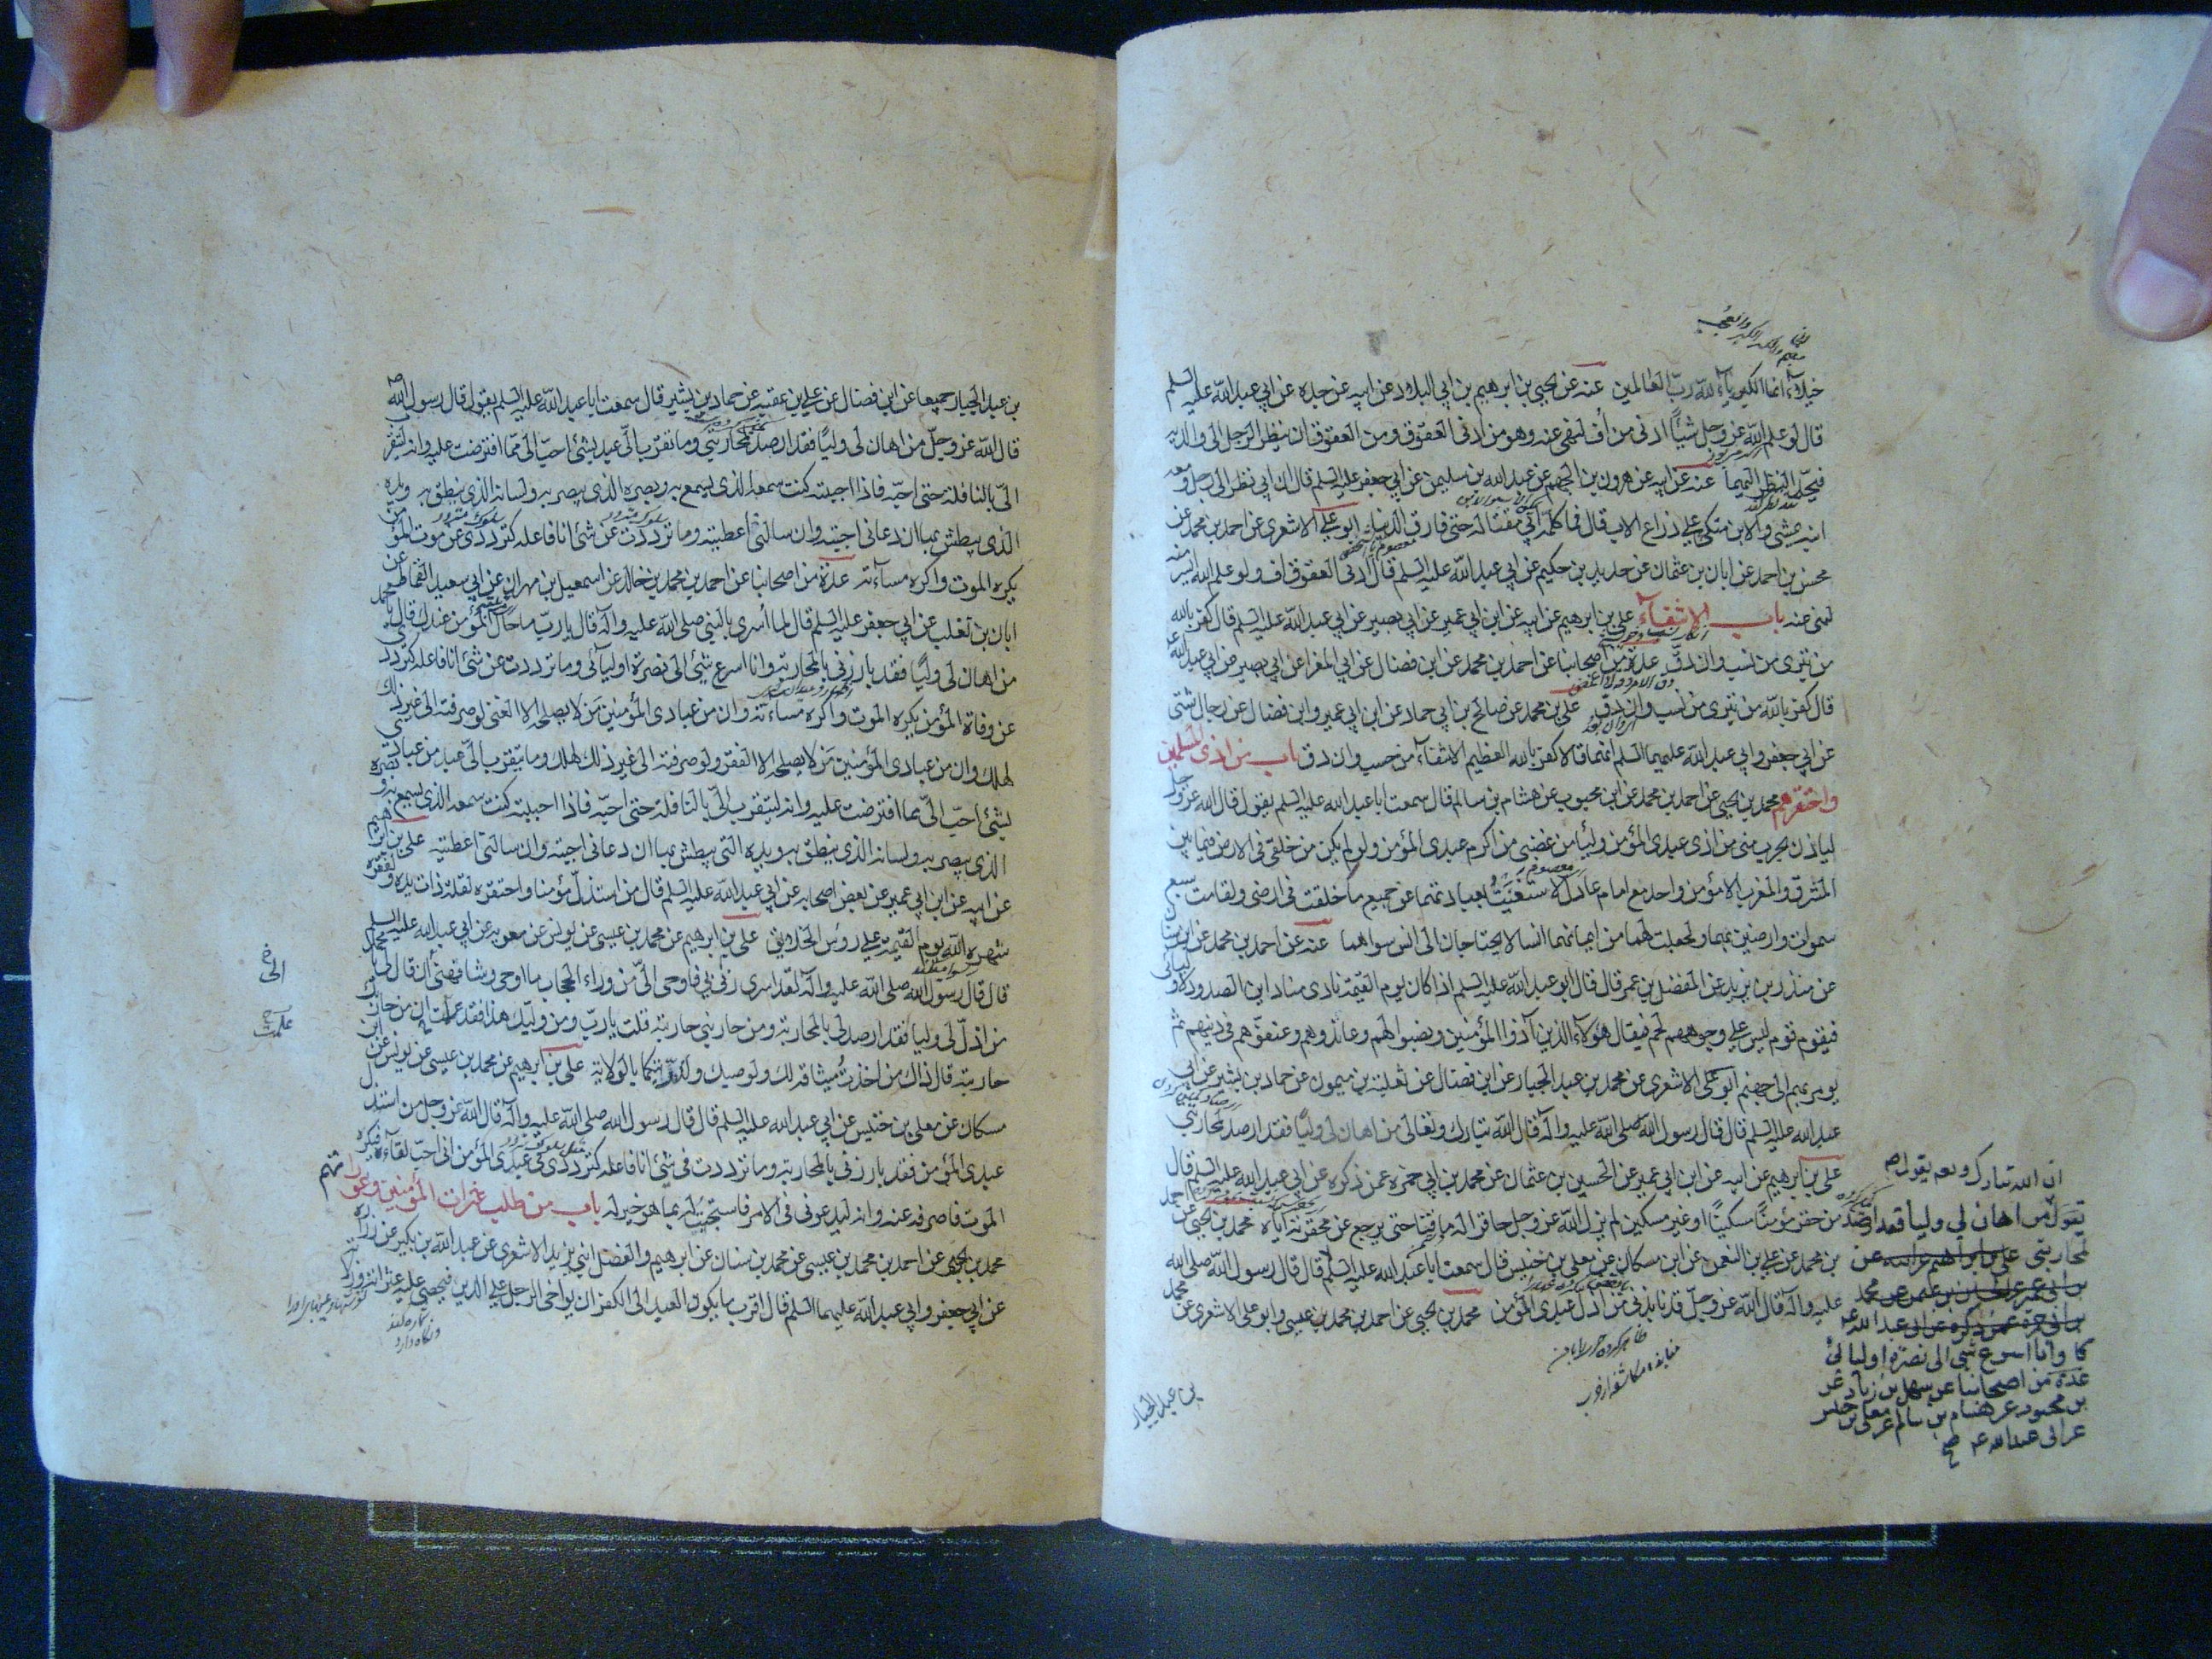 خيلاء انما الكبرياء لله ربّ العالمين عنه عن يحيى بن ابرهيم بن ابي البلاد عن ابيه عن جده عن ابي عبد الله عليه السلم
قال لو علم الله عز وجل شيئاً ادنى من أف لنهى عنه وهو من ادنى العقوق ومن العقوق ان ينظر الرجل الى والديه
فيحدّ النظر اليهما عنه عن ابيه عن هرون بن الجهم عن عبد الله بن سليمن عن ابي جعفر عليه السلم قال ان ابي نظر الى رجل ومعه
ابنه يمشي والابن متكئ على ذراع الاب قال فما كلمه ابي مقتا له حتى فارق الدنيا ابو علي الاشعري عن احمد بن محمد عن
محسن بن احمد عن ابان بن عثمان عن حديد بن حكيم عن ابي عبد الله عليه السلم قال ادنى العقوق اف ولو علم الله ايسر منه
لنهى عنه باب الانتفاء علي بن ابرهيم عن ابيه عن ابن ابي عمير عن ابي بصير عن ابي عبد الله عليه السلم قال كفر بالله
من تبرى من نسب وان دقّ عدة من اصحابنا عن احمد بن محمد عن ابن فضال عن ابي المغرا عن ابي بصير عن ابي عبد الله
قال كفر بالله من تبرى من نسب وان دق علي بن محمد عن صالح بن ابي حماد عن ابن ابي عمير وابن فضال عن رجال شتى
عن ابي جعفر وابي عبد الله عليهما السلم انهما قالا كفر بالله العظيم الانتفاء من حسب وان دق باب من اذى المسلمين
واحتقرهم محمد بن يحيى عن احمد بن محمد عن ابن محبوب عن هشام بن سالم قال سمعت ابا عبد الله عليه السلم يقول قال الله عز وجل
لياذن بحرب مني من اذى عبدي المؤمن وليأمن غضبي من اكرم عبدي المؤمن ولو لم يكن من خلقي في الارض فيما بين
المشرق والمغرب الا مؤمن واحد مع امام عادل لاستغنيت بعبادتهما عن جميع ما خلقت في ارضى ولقامت سبع
سموات وارضين بهما ولجعلت لهما من ايمانهما انسا لا يحتاجان الى انس سواهما عنه عن احمد بن محمد عن ابن سنان
عن منذر بن يزيد عن المفضل بن عمر قال قال ابو عبد الله عليه السلم اذا كان يوم القيمة نادى مناد اين الصدود لاوليائي
فيقوم قوم ليس على وجوههم لحم فيقال هؤلاء الذين آذوا المؤمنين ونصبوا لهم وعاندوهم وعنفوهم في دينهم ثم
يومر بهم الى جهنم ابو علي الاشعري عن محمد بن عبد الجبار عن ابن فضال عن ثعلبة بن ميمون عن حماد بن بشير عن ابي
عبد الله عليه السلم قال قال رسول الله صلى الله عليه وآله قال الله تبارك وتعالى من اهان لي وليا فقد ارصد لمحاربتي
علي بن ابرهيم عن ابيه عن ابن ابي عمير عن الحسين بن عثمان عن محمد بن ابي حمزه عمن ذكره عن ابي عبد الله عليه السلم قال
من حقر مؤمنًا مسكينًا او غير مسكين لم يزل الله عز وجل حاقرا له ماقتا حتى يرجع عن محقرته اياه محمد بن يحيى عن احمد
بن محمد عن علي بن النعمن عن ابن مسكان عن معلى بن خنيس قال سمعت ابا عبد الله عليه السلم قال قال رسول الله صلى الله
عليه وآله قال الله عز وجلّ قد نابذني من اذل عبدي المؤمن محمد بن يحيى عن احمد بن محمد بن عيسى وابو علي الاشعري عن محمد
بن عبد الجبار
ان الله تبارك وتعـ يقول
يقول من اهان لي وليا فقد ارصد
لمحاربتي علي بن ابراهيم عن ابيه عن
بن ابي عمير عن الحسين بن عثمن عن محمد
بن ابي حمزة عمن ذكره عن ابي عبد الله ع
كا وانا اسرع شي الى نصرة اوليائي
عدة من اصحابنا عن سهل بن زياد عن
بن محبوب عن هشام بن سالم عن معلى بن خنيس
عن ابي عبد الله ع صح
بن عبد الجبار جميعا عن ابن فضال عن علي بن عقبه عن حماد بن بشير قال سمعت ابا عبد الله عليه السلم يقول قال رسول الله ص
قال الله عز وجلّ من اهان لي وليًا فقد ارصد لمحاربتي وما تقرّب اليّ عبد بشئ احبّ اليّ مما افترضت عليه وانه ليتقرب
اليّ بالنافلة حتى احبّه فاذا احببته كنت سمعه الذي يسمع به وبصره الذي يبصر به ولسانه الذي ينطق به ويده
الذي يبطش بها ان دعاني اجبته وان سالني اعطيته وما ترددت عن شئ انا فاعله كترددي عن موت المؤمن
يكره الموت واكره مساءته عدة من اصحابنا عن احمد بن محمد بن خالد عن اسمعيل بن مهران عن ابي سعيد القماط عن
ابان بن تغلب عن ابي جعفر عليه السلم قال لما أسري بالنبي صلى الله عليه وآله قال يا ربّ ما حال المؤمن عندك قال يا محمد
من اهان لي وليًا فقد بارزني بالمحاربة وانا اسرع شئ الى نصرة اوليائي وما ترددت عن شئ انا فاعله كترددي
عن وفاة المؤمن يكره الموت واكره مساءته وان من عبادي المؤمنين من لا يصلحه الا الغنى لو صرفته الى غير ذلك
لهلك وان من عبادي المؤمنين من لا يصلحه الا الفقر ولو صرفته الى غير ذلك لهلك وما يتقرب اليّ عبد من عبادي
بشئ احبّ اليّ مما افترضت عليه وانه ليتقرب اليّ بالنافلة حتى احبّه فاذا احببته كنت سمعه الذي يسمع به وبصره
الذي يبصر به ولسانه الذي ينطق به ويده التي يبطش بها ان دعاني اجبته وان سالني اعطيته علي بن ابرهيم
عن ابيه عن ابن ابي عمير عن بعض اصحابه عن ابي عبد الله عليه السلم قال من استذلّ مؤمنا واحتقره لقلة ذات يده ولفقره
شهره الله يوم القيمة على رؤس الخلايق علي بن ابرهيم عن محمد بن عيسى عن يونس عن معويه عن ابي عبد الله عليه السلم
قال قال رسول الله صلى الله عليه وآله لقد اسرى ربي بي فاوحى اليّ من وراء الحجاب ما اوحى وشافهني أن قال لي يا محمد
من اذلّ لي وليا فقد ارصد لي بالمحاربة ومن حاربني حاربته قلت يا ربّ ومن وليك هذا فقد علمت ان من حاربك
حاربته قال ذاك من اخذت ميثاقه لك ولوصيك ولذريتكما بالولاية علي بن ابرهيم عن محمد بن عيسى عن يونس عن ابن
مسكان عن معلى بن خنيس عن ابي عبد الله عليه السلم قال قال رسول الله صلى الله عليه وآله قال الله عز وجل من استذل
عبدي المؤمن فقد بارزني بالمحاربة وما ترددت في شئ انا فاعله كترددي في عبدي المؤمن اني احبّ لقاءه فيكره
الموت فاصرفه عنه وانه ليدعوني في الامر فاستجيب له بما هو خير له باب من طلب عثرات المؤمنين وعوراتهم
محمد بن يحيى عن احمد بن محمد بن عيسى عن محمد بن سنان عن ابرهيم والفضل ابني يزيد الاشعري عن عبد الله بن بكير عن زراره
عن ابي جعفر وابي عبد الله عليهما السلم قال اقرب ما يكون العبد الى الكفر ان يواخى الرجل على الدين فيحصي عليه عثراته وزلاته